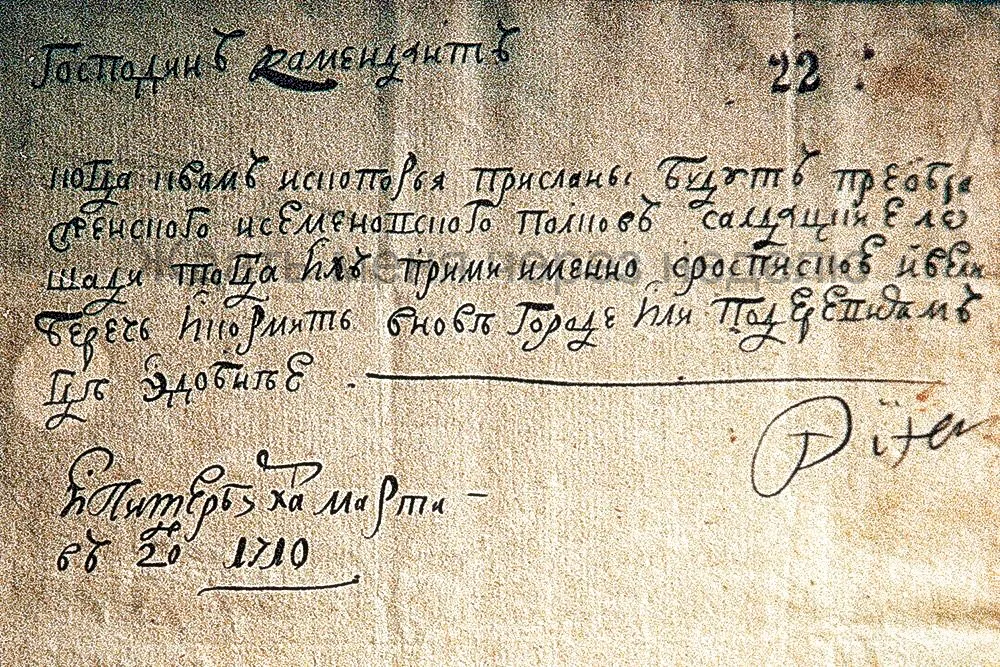 Господинъ камендантъ 22
когда квамъ ископорья присланы будутъ преобра
женского исеменовского полковъ салдацкие ло
шади тогда ихъ прими именно сроспискою ивели
беречь икормить вновѣ городе или подеревнямъ
гдѣ удобнѣе
Piter
марта
въ 20 1710